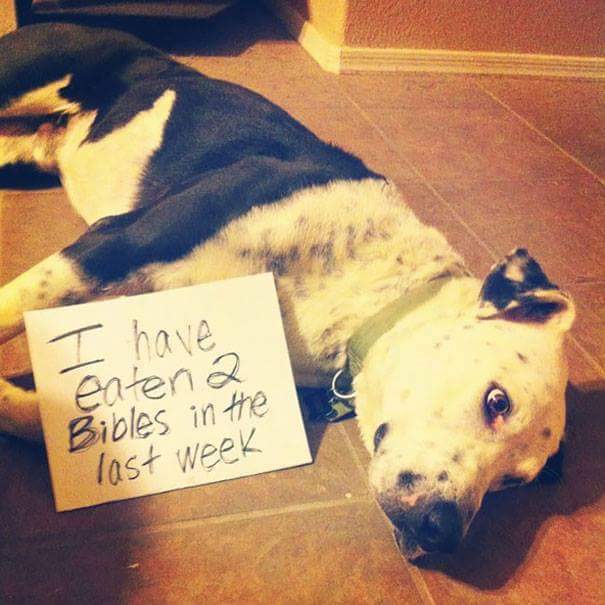 I have
eaten 2
Bibles in the
last week